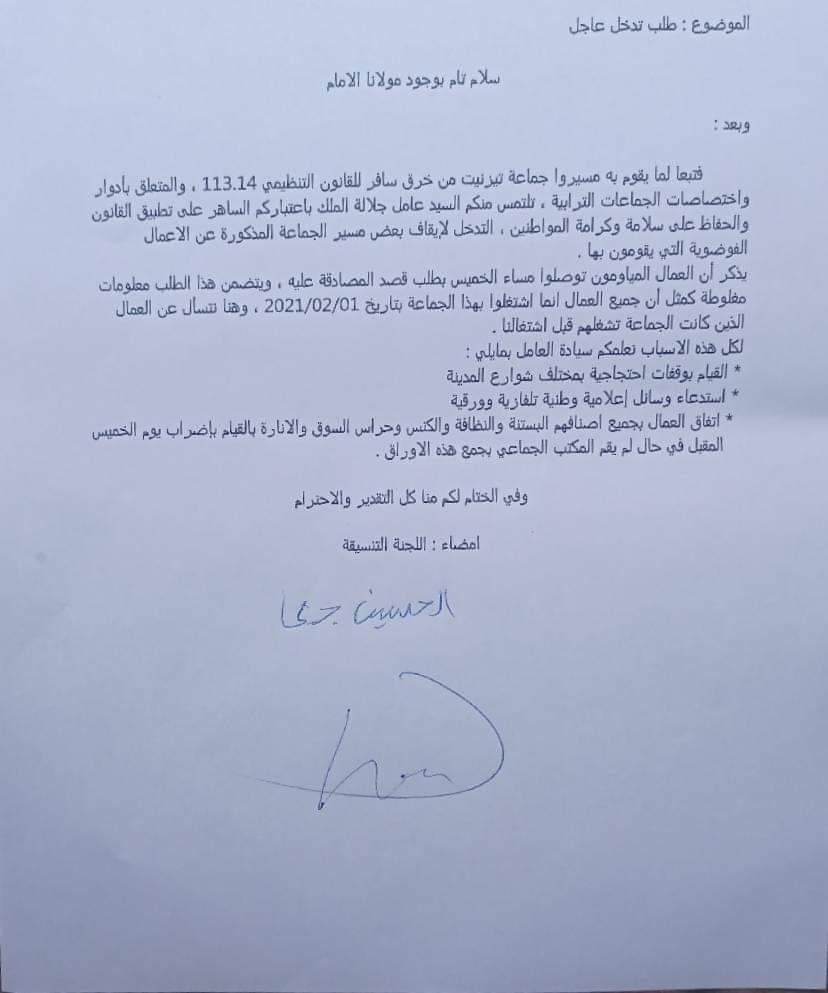 الموضوع : طلب تدخل عاجل
سلام تام بوجود مولانا الامام
وبعد :
فتبعا لما يقوم به مسيروا جماعة تيزنيت من خرق سافر للقانون التنظيمي 113.14 ، والمتعلق بأدوار
واختصاصات الجماعات الترابية ، نلتمس منكم السيد عامل جلالة الملك باعتباركم الساهر على تطبيق القانون
والحفاظ على سلامة وكرامة المواطنين ، التدخل لإيقاف بعض مسير الجماعة المذكورة عن الاعمال
الفوضوية التي يقومون بها .
يذكر أن العمال المياومون توصلوا مساء الخميس بطلب قصد المصادقة عليه ، ويتضمن هذا الطلب معلومات
مغلوطة كمثل أن جميع العمال انما اشتغلوا بهذا الجماعة بتاريخ 2021/02/01 ، وهنا نتسأل عن العمال
الذين كانت الجماعة تشغلهم قبل اشتغالنا .
لكل هذه الاسباب نعلمكم سيادة العامل بمايلي :
* القيام بوقفات احتجاجية بمختلف شوارع المدينة
* استدعاء وسائل إعلامية وطنية تلفازية وورقية
* اتفاق العمال بجميع اصنافهم البستنة والنظافة والكنس وحراس السوق والانارة بالقيام بإضراب يوم الخميس
المقبل في حال لم يقم المكتب الجماعي بجمع هذه الاوراق .
وفي الختام لكم منا كل التقدير والاحترام
امضاء : اللجنة التنسيقة
الحسين